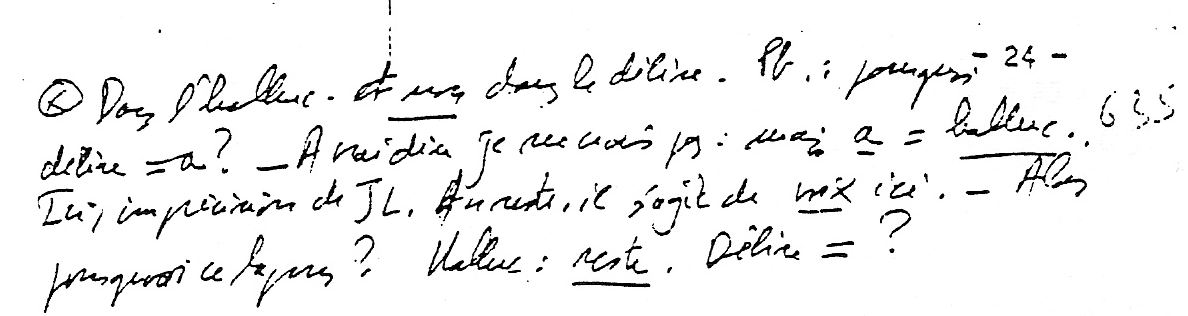 - 24 -
Ⓧ Dans l'halluc. et non dans le délire. Pb. : pourquoi
délire = a ? — A vrai dire je ne crois pas : mais a = halluc. 635
Ici, imprécision de JL. Au reste, il s'agit de voix ici. — Alors
pourquoi ce lapsus ? Halluc : reste. Délire = ?